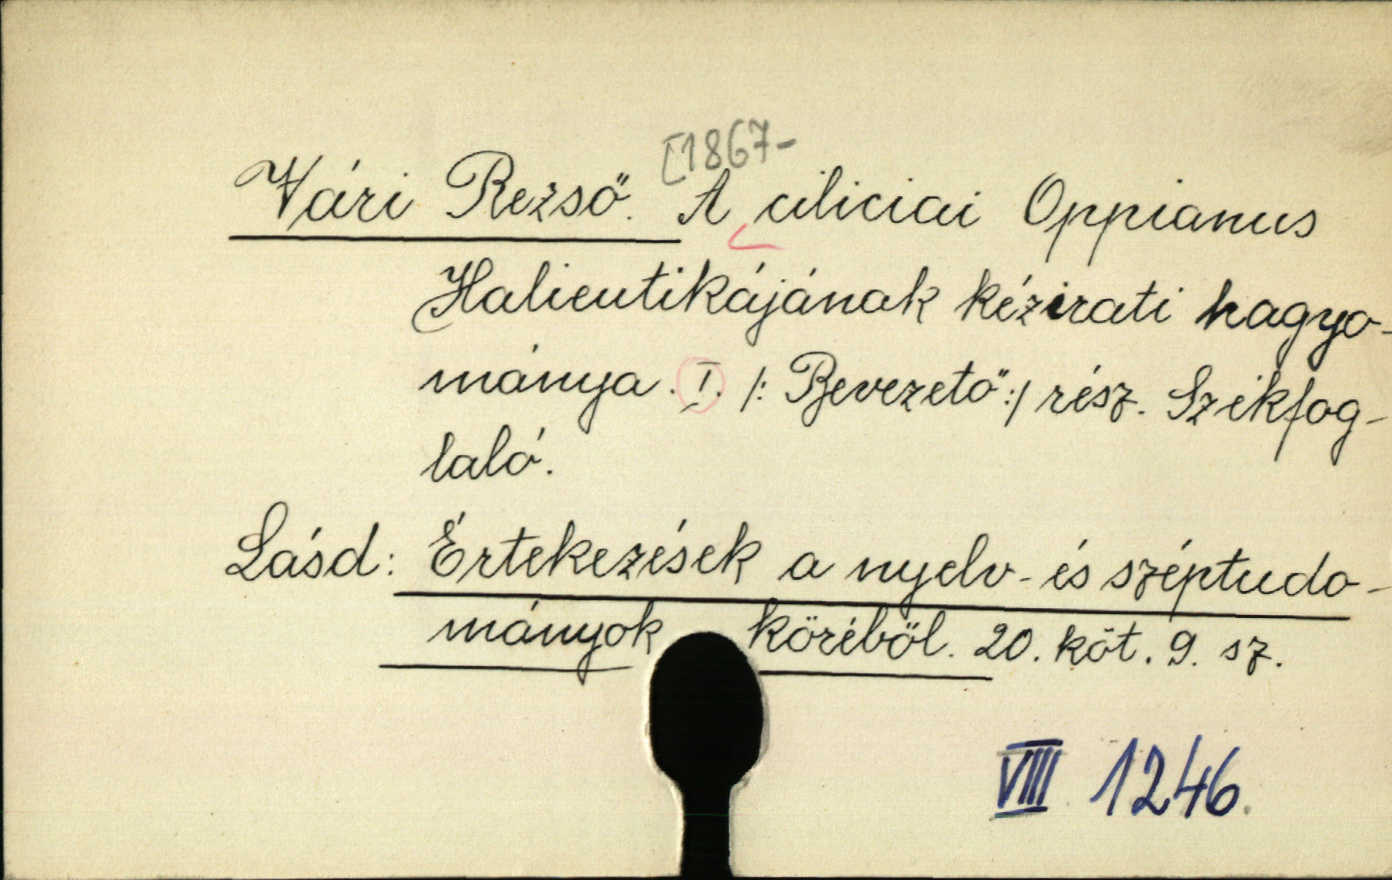 [1867-
Vári Rezső. A ciliciai Oppianus
Halieutikájának kézirati hagyo-
mánya. I. /: Bevezető :/ rész. Székfog-
laló.
Lásd: Értekezések a nyelv- és széptudo-
mányok köréből. 20. köt. 9. sz.
VIII 1246.